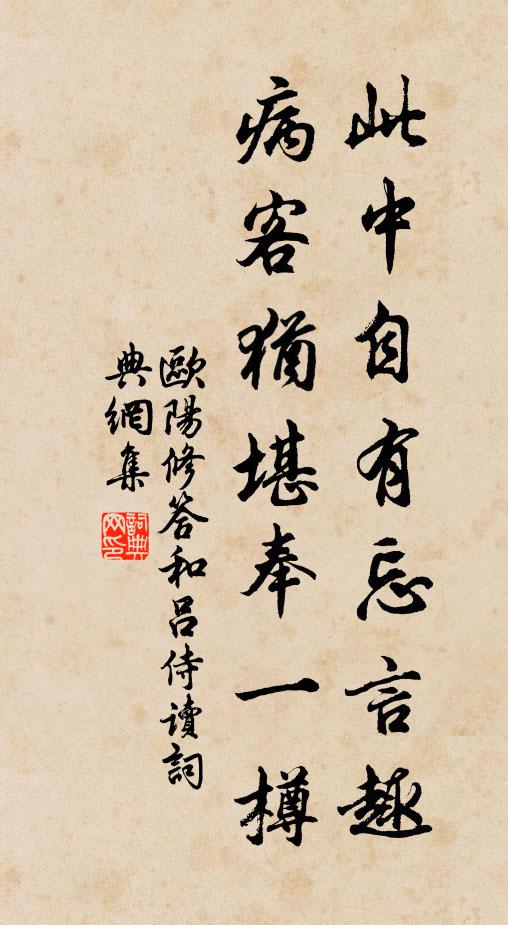 此中自有忘言趣
病客猶堪奉一樽
歐陽修答和呂侍讀詞
典網集
詞典
網印